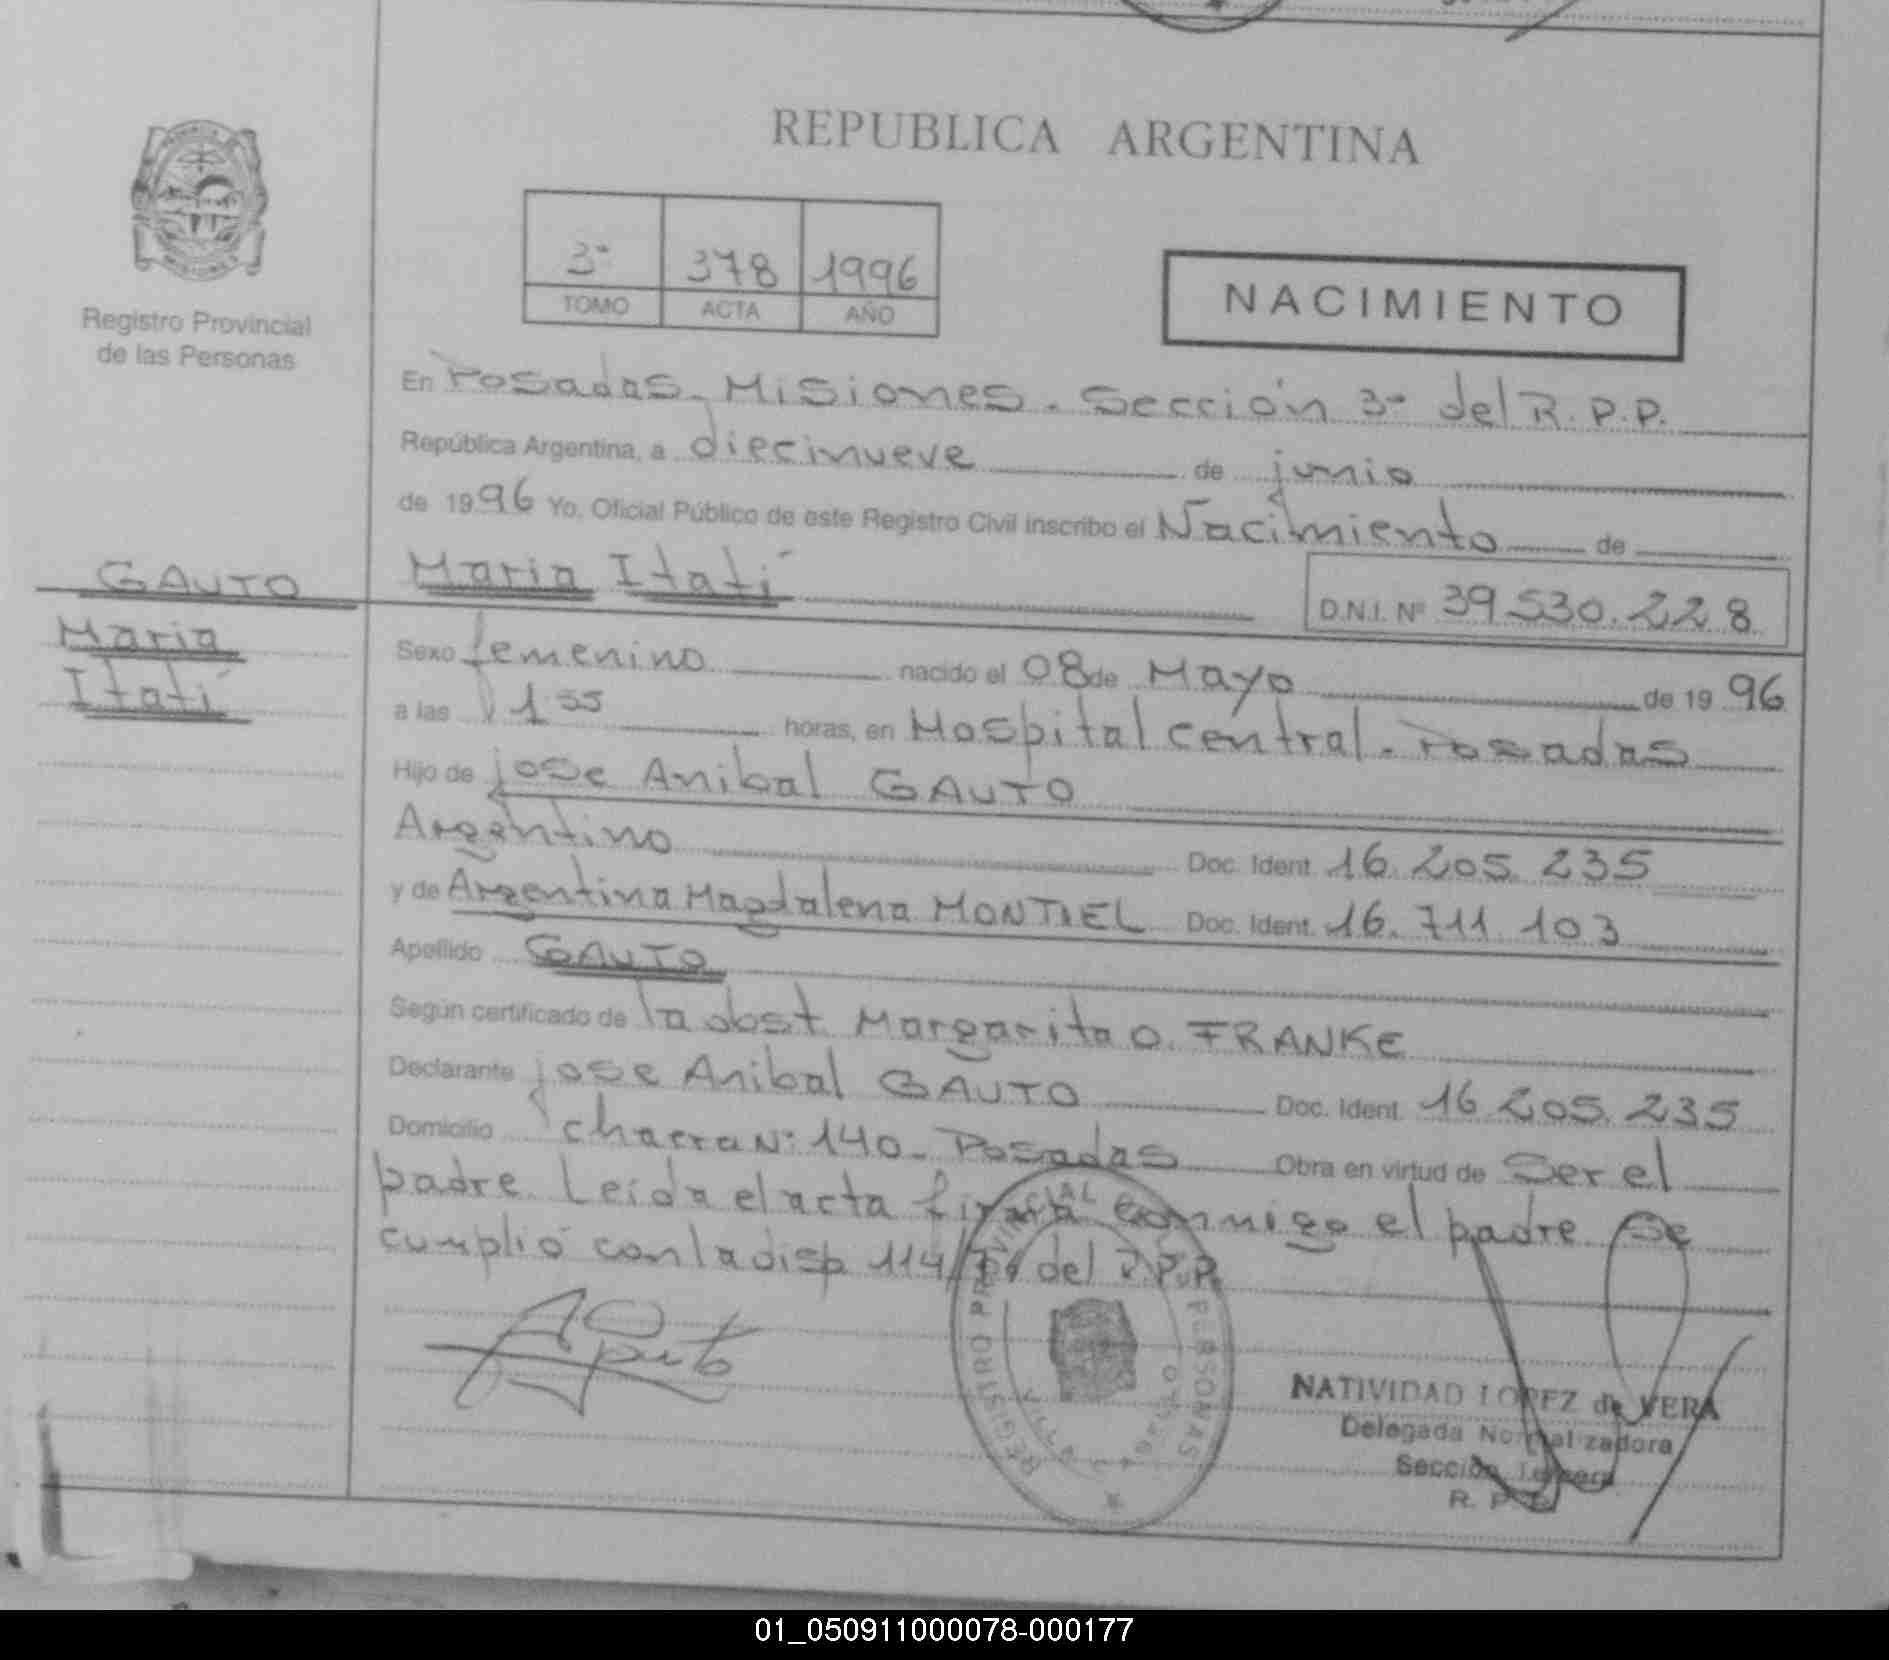 REPUBLICA ARGENTINA
3ª 378 1996
TOMO ACTA AÑO
NACIMIENTO
Registro Provincial
de las Personas
En Posadas - Misiones. Sección 3ª del R.P.P.
República Argentina, a diecinueve de junio
de 1996 Yo, Oficial Público de este Registro Civil inscribo el Nacimiento de
GAUTO
Maria
Itatí
Maria Itatí
D.N.I. Nº 39.530.228
Sexo femenino nacido el 08 de Mayo de 1996
a las 1 55 horas, en Hospital Central - Posadas
Hijo de jose Anibal GAUTO
Argentino Doc. Ident. 16.205.235
y de Argentina Magdalena MONTIEL Doc. Ident. 16.711.103
Apellido GAUTO
Según certificado de la obst Margarita O. FRANKE
Declarante jose Anibal GAUTO Doc. Ident. 16.205.235
Domicilio chacra Nº 140 - Posadas Obra en virtud de Ser el
padre. Leída el acta firma conmigo el padre. Se
cumplió con la disp 114/ del R.P.P.
REGISTRO PROVINCIAL PERSONAS
NATIVIDAD LOPEZ de VERA
Delegada Normalizadora
Sección Tercera
R. P.
01_050911000078-000177